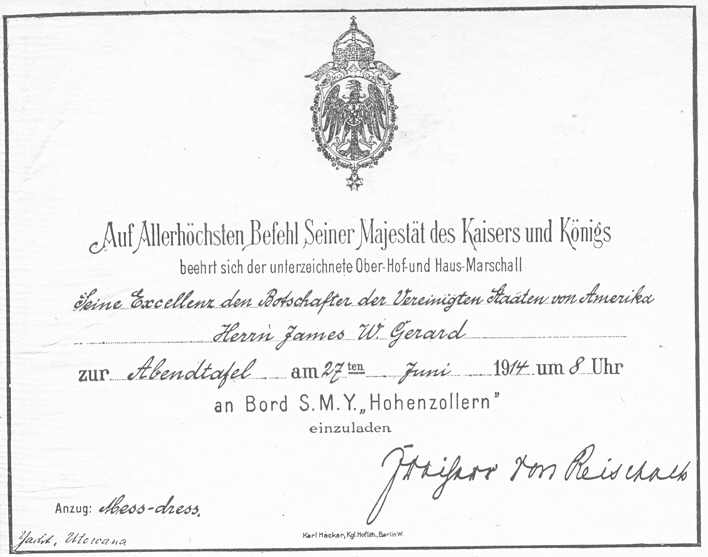 Auf Allerhöchsten Befehl Seiner Majestät des Kaisers und Königs
beehrt sich der unterzeichnete Ober-Hof-und Haus-Marschall
Seine Excellenz den Botschafter der Vereinigten Staaten von Amerika
Herrn James W. Gerard
zur Abendtafel am 27ten Juni 1914 um 8 Uhr
an Bord S.M.Y. „Hohenzollern”
einzuladen
Freiherr von Reischach
Anzug: Mess-dress.
Yacht, Utowana
Karl Hacker, Kgl. Hoflith., Berlin W.